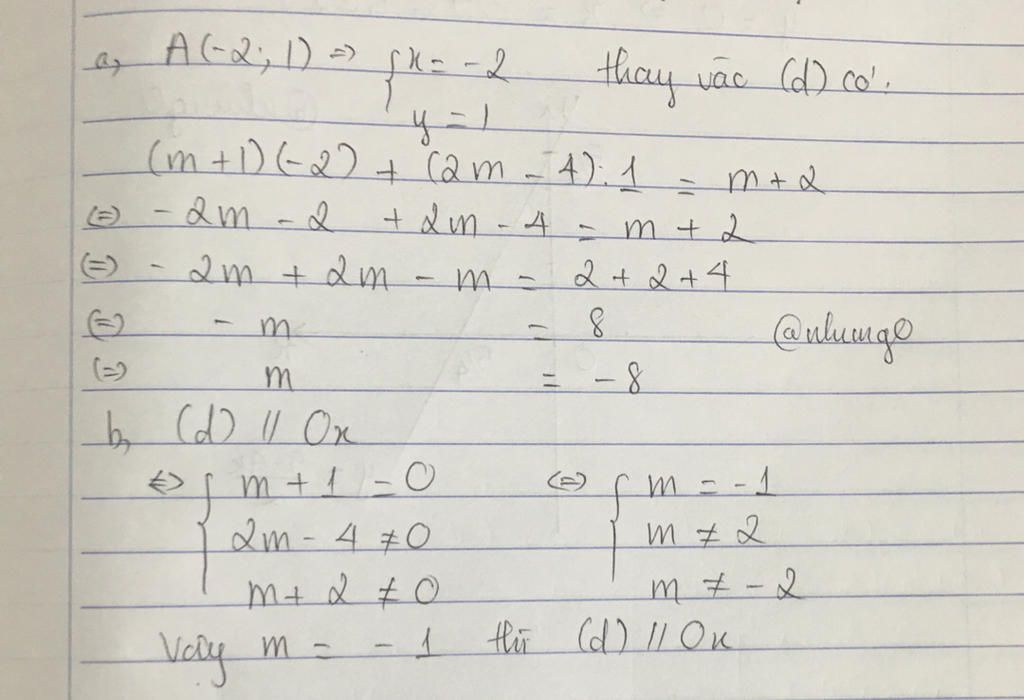 a, A(-2; 1) => { x = -2 thay vào (d) có:
y = 1
(m+1)(-2) + (2m - 4).1 = m + 2
<=> - 2m - 2 + 2m - 4 = m + 2
<=> - 2m + 2m - m = 2 + 2 + 4
<=> - m = 8 @nlumg0
<=> m = - 8
b, (d) // Ox
<=> { m + 1 = 0 <=> { m = - 1
2m - 4 ≠ 0 m ≠ 2
m + 2 ≠ 0 m ≠ - 2
Vậy m = - 1 thì (d) // Ox